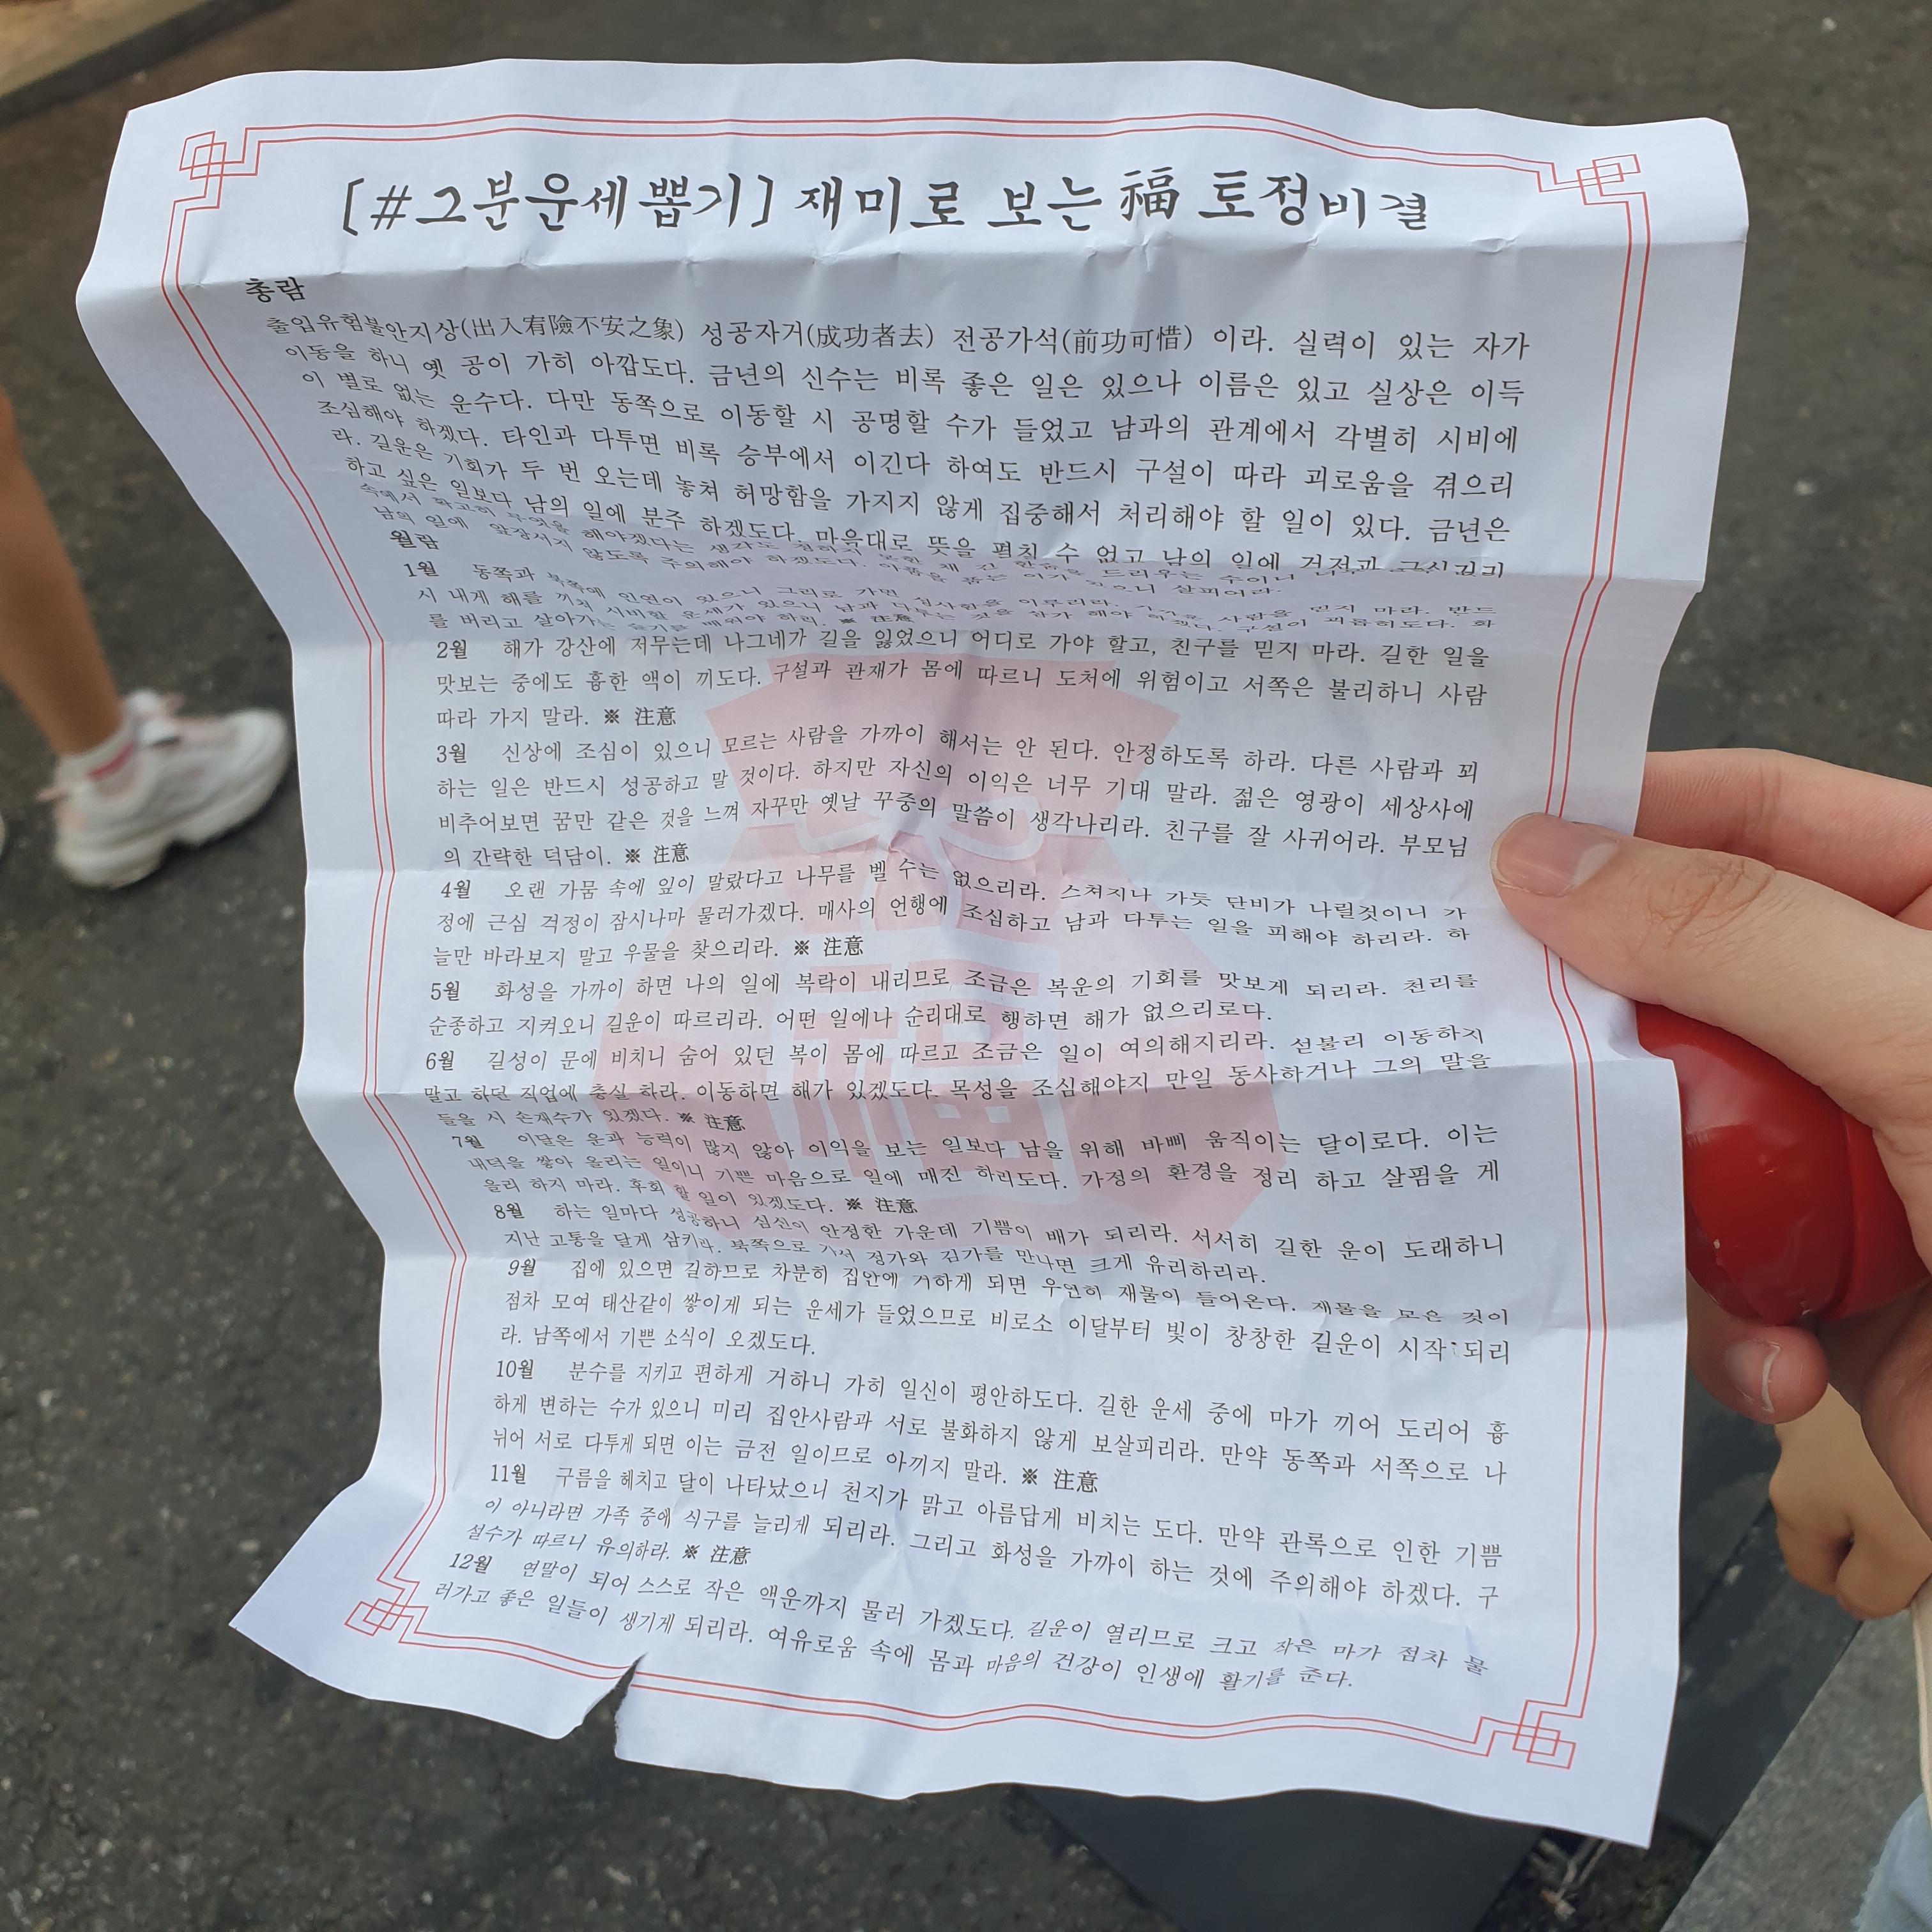 [#그분운세뽑기] 재미로 보는 福 토정비결
총람
출입유험불안지상(出入宥險不安之象) 성공자거(成功者去) 전공가석(前功可惜) 이라. 실력이 있는 자가
이동을 하니 옛 공이 가히 아깝도다. 금년의 신수는 비록 좋은 일은 있으나 이름은 있고 실상은 이득
이 별로 없는 운수다. 다만 동쪽으로 이동할 시 공명할 수가 들었고 남과의 관계에서 각별히 시비에
조심해야 하겠다. 타인과 다투면 비록 승부에서 이긴다 하여도 반드시 구설이 따라 괴로움을 겪으리
라. 길운은 기회가 두 번 오는데 놓쳐 허망함을 가지지 않게 집중해서 처리해야 할 일이 있다. 금년은
하고 싶은 일보다 남의 일에 분주 하겠도다. 마음대로 뜻을 펼칠 수 없고 남의 일에 걱정과 근심거리
속에서 확고히 무엇을 해야겠다는 생각도 채 긴 한숨을 드리우는 수이니
남의 일에 앞장서지 않도록 주의해야 하겠도다. 살피어라.
월람
1월 동쪽과 북쪽에 인연이 있으니 그리로 가면 사람을 믿지 마라. 반드
시 내게 해를 끼쳐 시비할 운세가 있으니 남과 다투는 것을 삼가 해야 구설이 괴롭히도다. 화
를 버리고 살아가는 배워야 하리. ※ 注意
2월 해가 강산에 저무는데 나그네가 길을 잃었으니 어디로 가야 할고, 친구를 믿지 마라. 길한 일을
맛보는 중에도 흉한 액이 끼도다. 구설과 관재가 몸에 따르니 도처에 위험이고 서쪽은 불리하니 사람
따라 가지 말라. ※ 注意
3월 신상에 조심이 있으니 모르는 사람을 가까이 해서는 안 된다. 안정하도록 하라. 다른 사람과 꾀
하는 일은 반드시 성공하고 말 것이다. 하지만 자신의 이익은 너무 기대 말라. 젊은 영광이 세상사에
비추어보면 꿈만 같은 것을 느껴 자꾸만 옛날 꾸중의 말씀이 생각나리라. 친구를 잘 사귀어라. 부모님
의 간략한 덕담이. ※ 注意
4월 오랜 가뭄 속에 잎이 말랐다고 나무를 벨 수는 없으리라. 스쳐지나 가듯 단비가 나릴것이니 가
정에 근심 걱정이 잠시나마 물러가겠다. 매사의 언행에 조심하고 남과 다투는 일을 피해야 하리라. 하
늘만 바라보지 말고 우물을 찾으리라. ※ 注意
5월 화성을 가까이 하면 나의 일에 복락이 내리므로 조금은 복운의 기회를 맛보게 되리라. 천리를
순종하고 지켜오니 길운이 따르리라. 어떤 일에나 순리대로 행하면 해가 없으리로다.
6월 길성이 문에 비치니 숨어 있던 복이 몸에 따르고 조금은 일이 여의해지리라. 섣불리 이동하지
말고 하던 직업에 충실 하라. 이동하면 해가 있겠도다. 목성을 조심해야지 만일 동사하거나 그의 말을
들을 시 손재수가 있겠다. ※ 注意
7월 이달은 운과 능력이 많지 않아 이익을 보는 일보다 남을 위해 바삐 움직이는 달이로다. 이는
내덕을 쌓아 올리는 일이니 기쁜 마음으로 일에 매진 하리도다. 가정의 환경을 정리 하고 살핌을 게
을리 하지 마라. 후회 할 일이 있겠도다. ※ 注意
8월 하는 일마다 성공하니 심신이 안정한 가운데 기쁨이 배가 되리라. 서서히 길한 운이 도래하니
지난 고통을 달게 삼키라. 북쪽으로 가서 정가와 김가를 만나면 크게 유리하리라.
9월 집에 있으면 길하므로 차분히 집안에 거하게 되면 우연히 재물이 들어온다. 재물을 모은 것이
점차 모여 태산같이 쌓이게 되는 운세가 들었으므로 비로소 이달부터 빛이 창창한 길운이 시작 되리
라. 남쪽에서 기쁜 소식이 오겠도다.
10월 분수를 지키고 편하게 거하니 가히 일신이 평안하도다. 길한 운세 중에 마가 끼어 도리어 흉
하게 변하는 수가 있으니 미리 집안사람과 서로 불화하지 않게 보살피리라. 만약 동쪽과 서쪽으로 나
뉘어 서로 다투게 되면 이는 금전 일이므로 아끼지 말라. ※ 注意
11월 구름을 헤치고 달이 나타났으니 천지가 맑고 아름답게 비치는 도다. 만약 관록으로 인한 기쁨
이 아니라면 가족 중에 식구를 늘리게 되리라. 그리고 화성을 가까이 하는 것에 주의해야 하겠다. 구
설수가 따르니 유의하라. ※ 注意
12월 연말이 되어 스스로 작은 액운까지 물러 가겠도다. 길운이 열리므로 크고 작은 마가 점차 물
러가고 좋은 일들이 생기게 되리라. 여유로움 속에 몸과 마음의 건강이 인생에 활기를 준다.